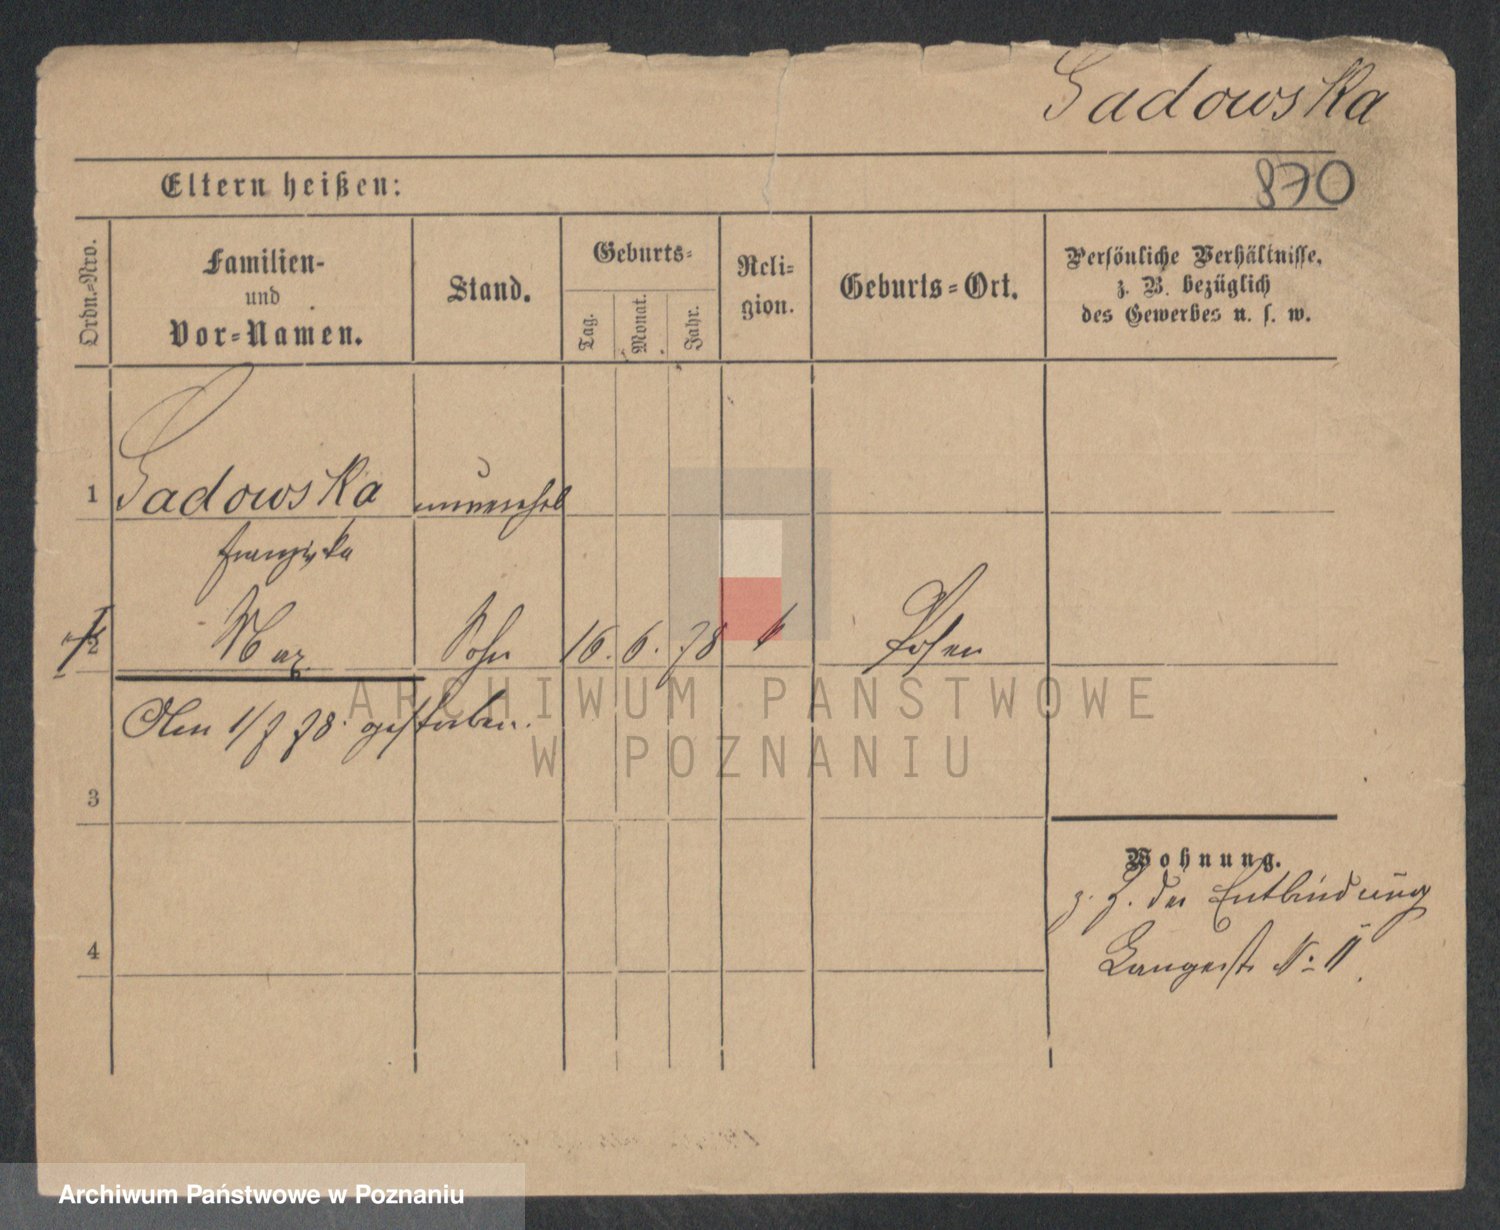 Gadowska
870
Eltern heißen:
Ordn.-Nro.
Familien-
und
Vor-Namen.
Stand.
Geburts-
Tag.
Monat.
Jahr.
Reli-
gion.
Geburts-Ort.
Persönliche Verhältnisse,
z. B. bezüglich
des Gewerbes u. s. w.
1 Gadowska unverehel
Franziska
2 Max Sohn 16. 6. 78 k Posen
Den 1/7 78. gestorben.
3
Wohnung.
z. Z. der Entbindung
Langestr No 11
4
ARCHIWUM PAŃSTWOWE
W POZNANIU
Archiwum Państwowe w Poznaniu